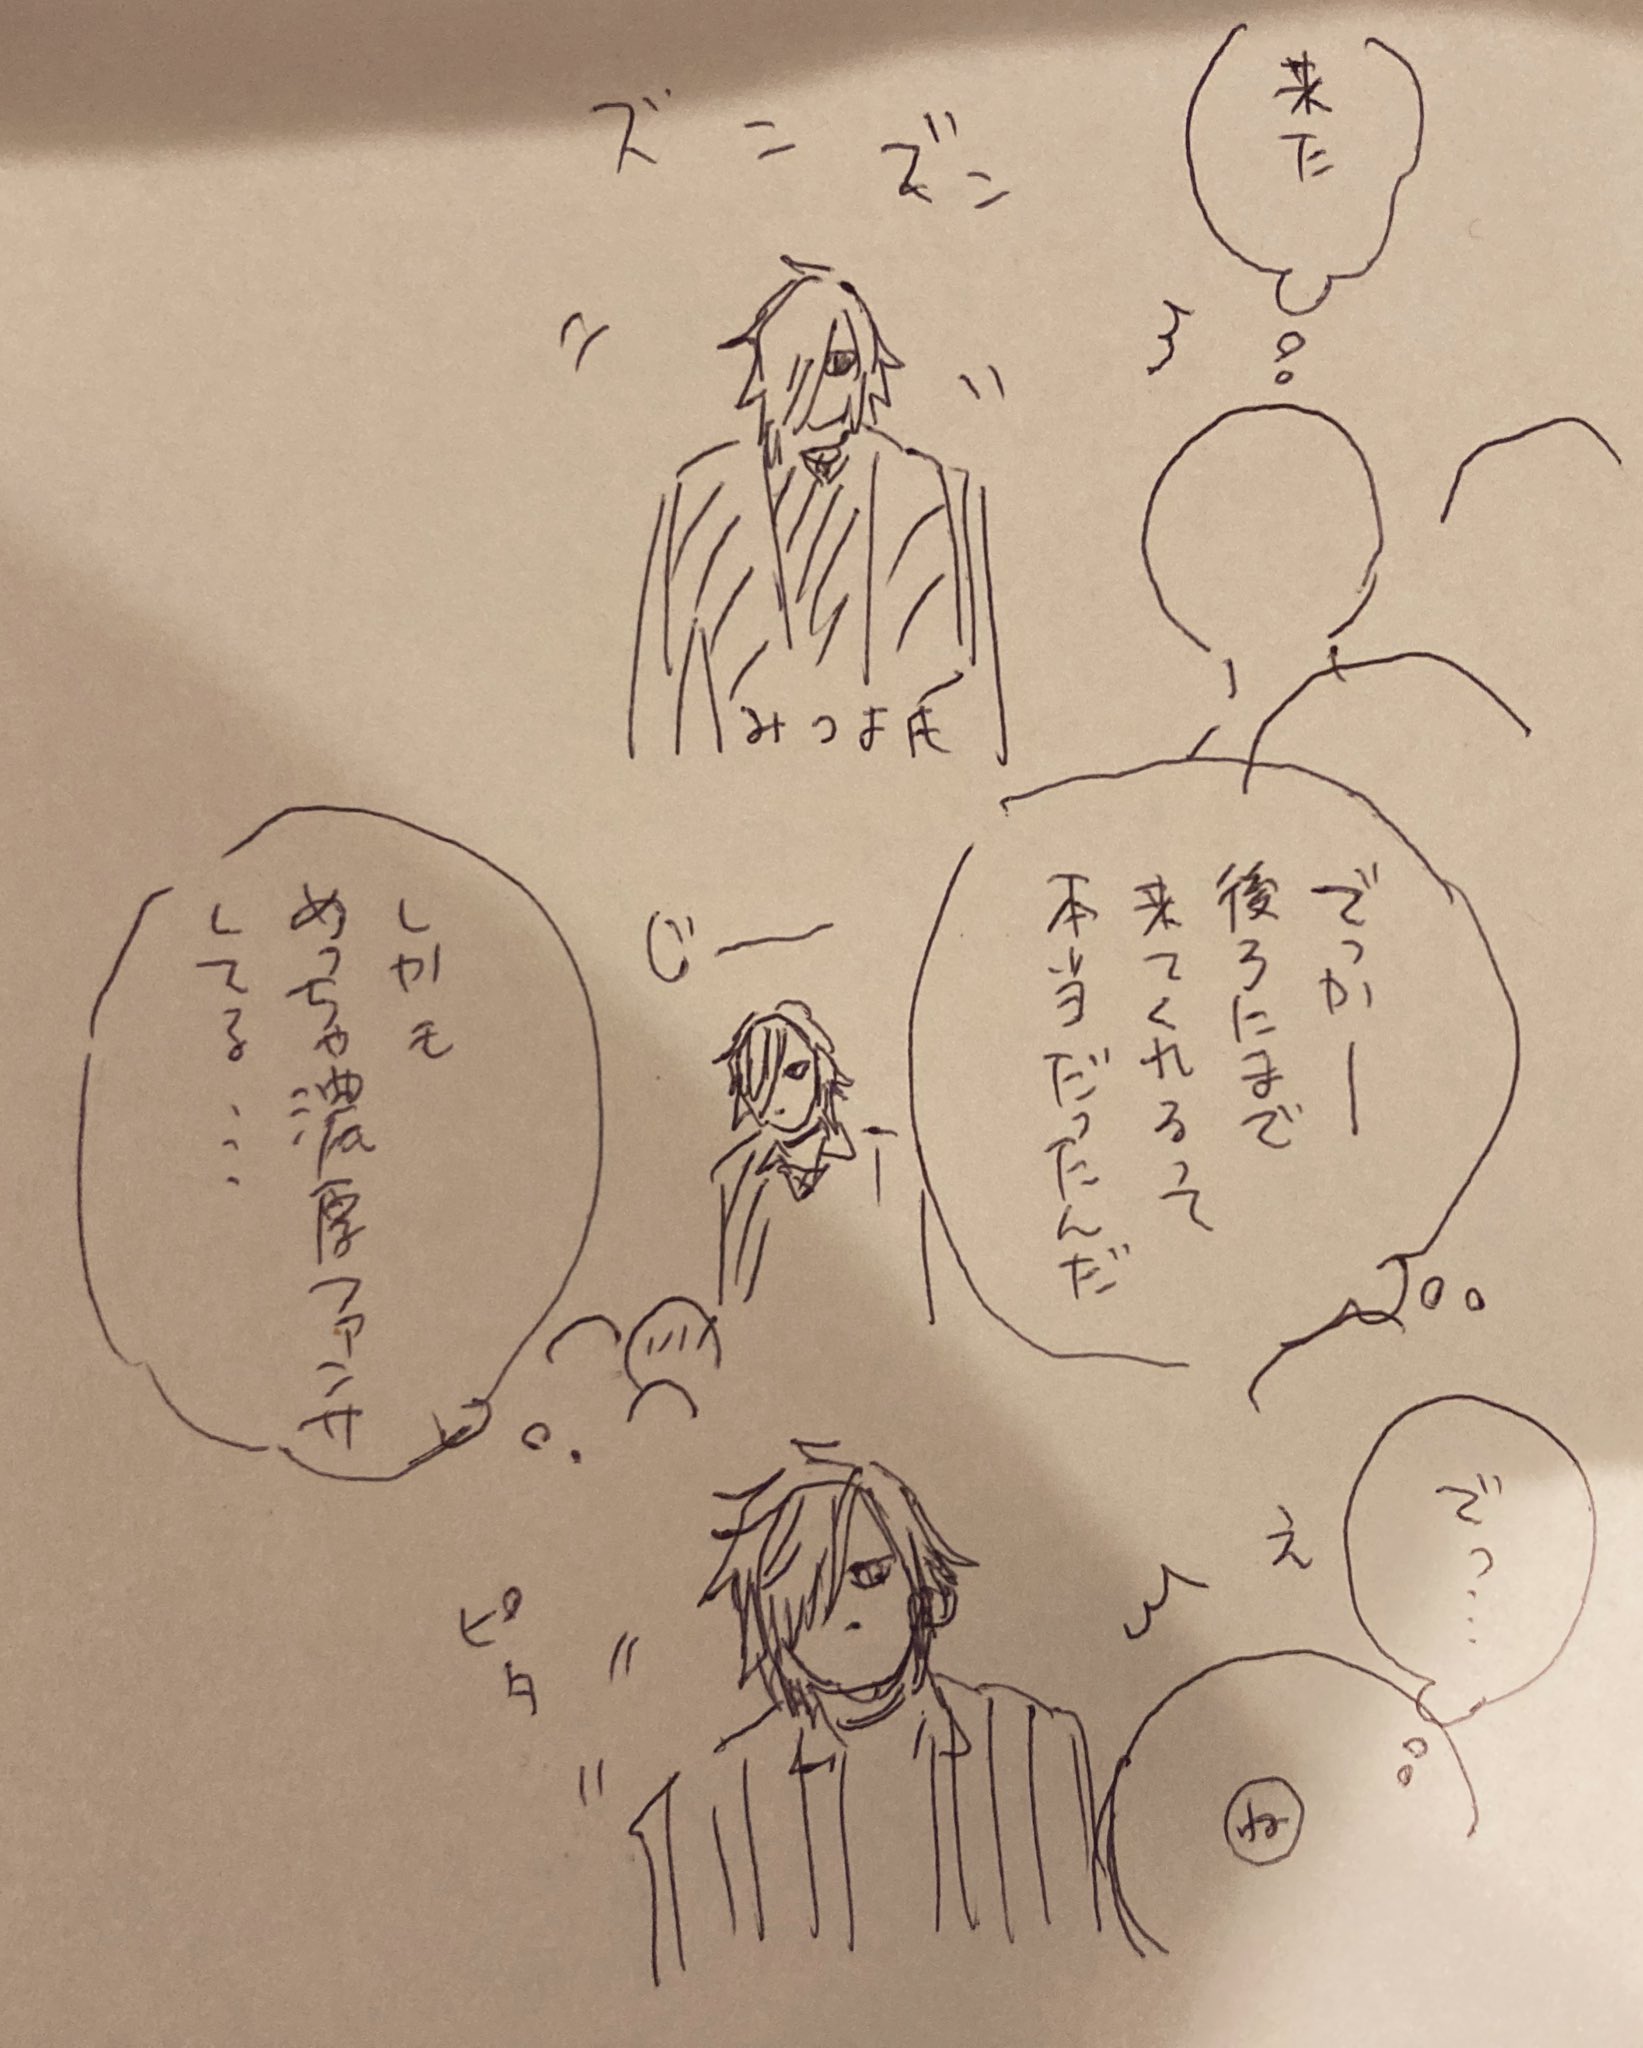 来た
ズンズン
みつよ氏
でっかー
後ろにまで
来てくれるって
本当だったんだ
じー
しかも
めっちゃ濃厚ファンサ
してる……
でっ……
え
ピタ
ね